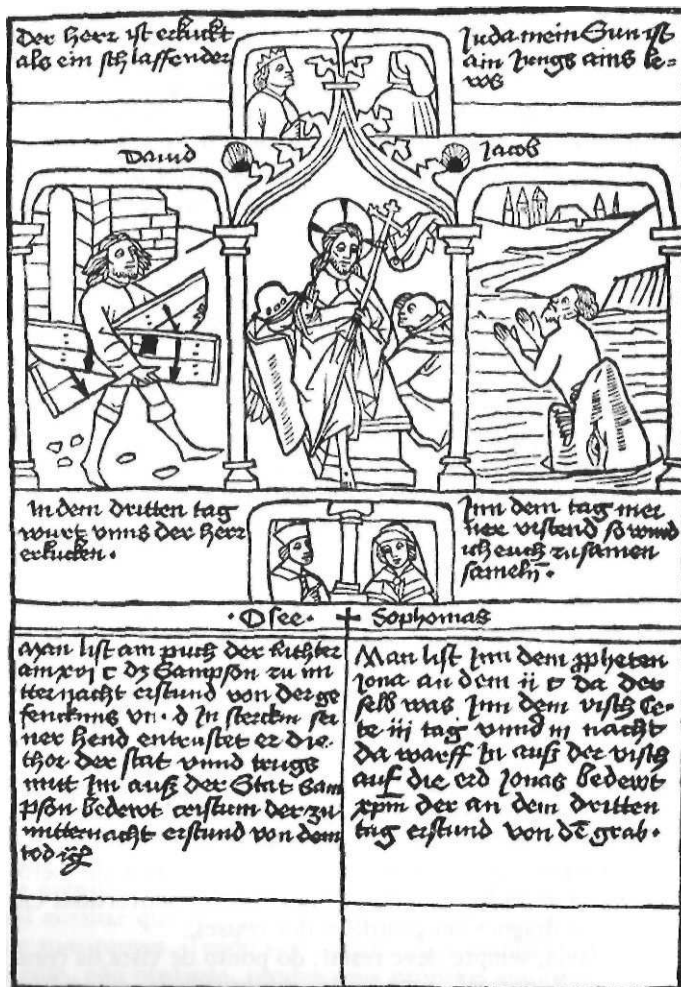 Der herr ist erkuckt
als ein schlaffender
Juda mein Sun ist
ain Jungs ains le-
ws
Dauid
Jacob
In dem dritten tag
wurt vnns der herr
erkucken.
Jnn dem tag mei
ner vistend so wurd
ich euch zu samen
sameln.
·Osee·
Sophomas
Man list am puch der Richter
am xvi c dz Sampson zu mi
tternacht erstund von der ge
fencknus vn d In sterckin sei
ner hend entrustet er die
thor der stat vnnd trugs
mitt Im auß der Stat Sam
pson bedewt cristum der zu
mitternacht erstund von dem
tod
Man list Jnn dem ppheten
Jona an dem ii c da der
selb was Jnn dem visch le-
te iii tag vnnd iii nacht
da warff In auß der visch
auf die erd Jonas bedewt
xpm der an dem dritten
tag erstund von dē grab·